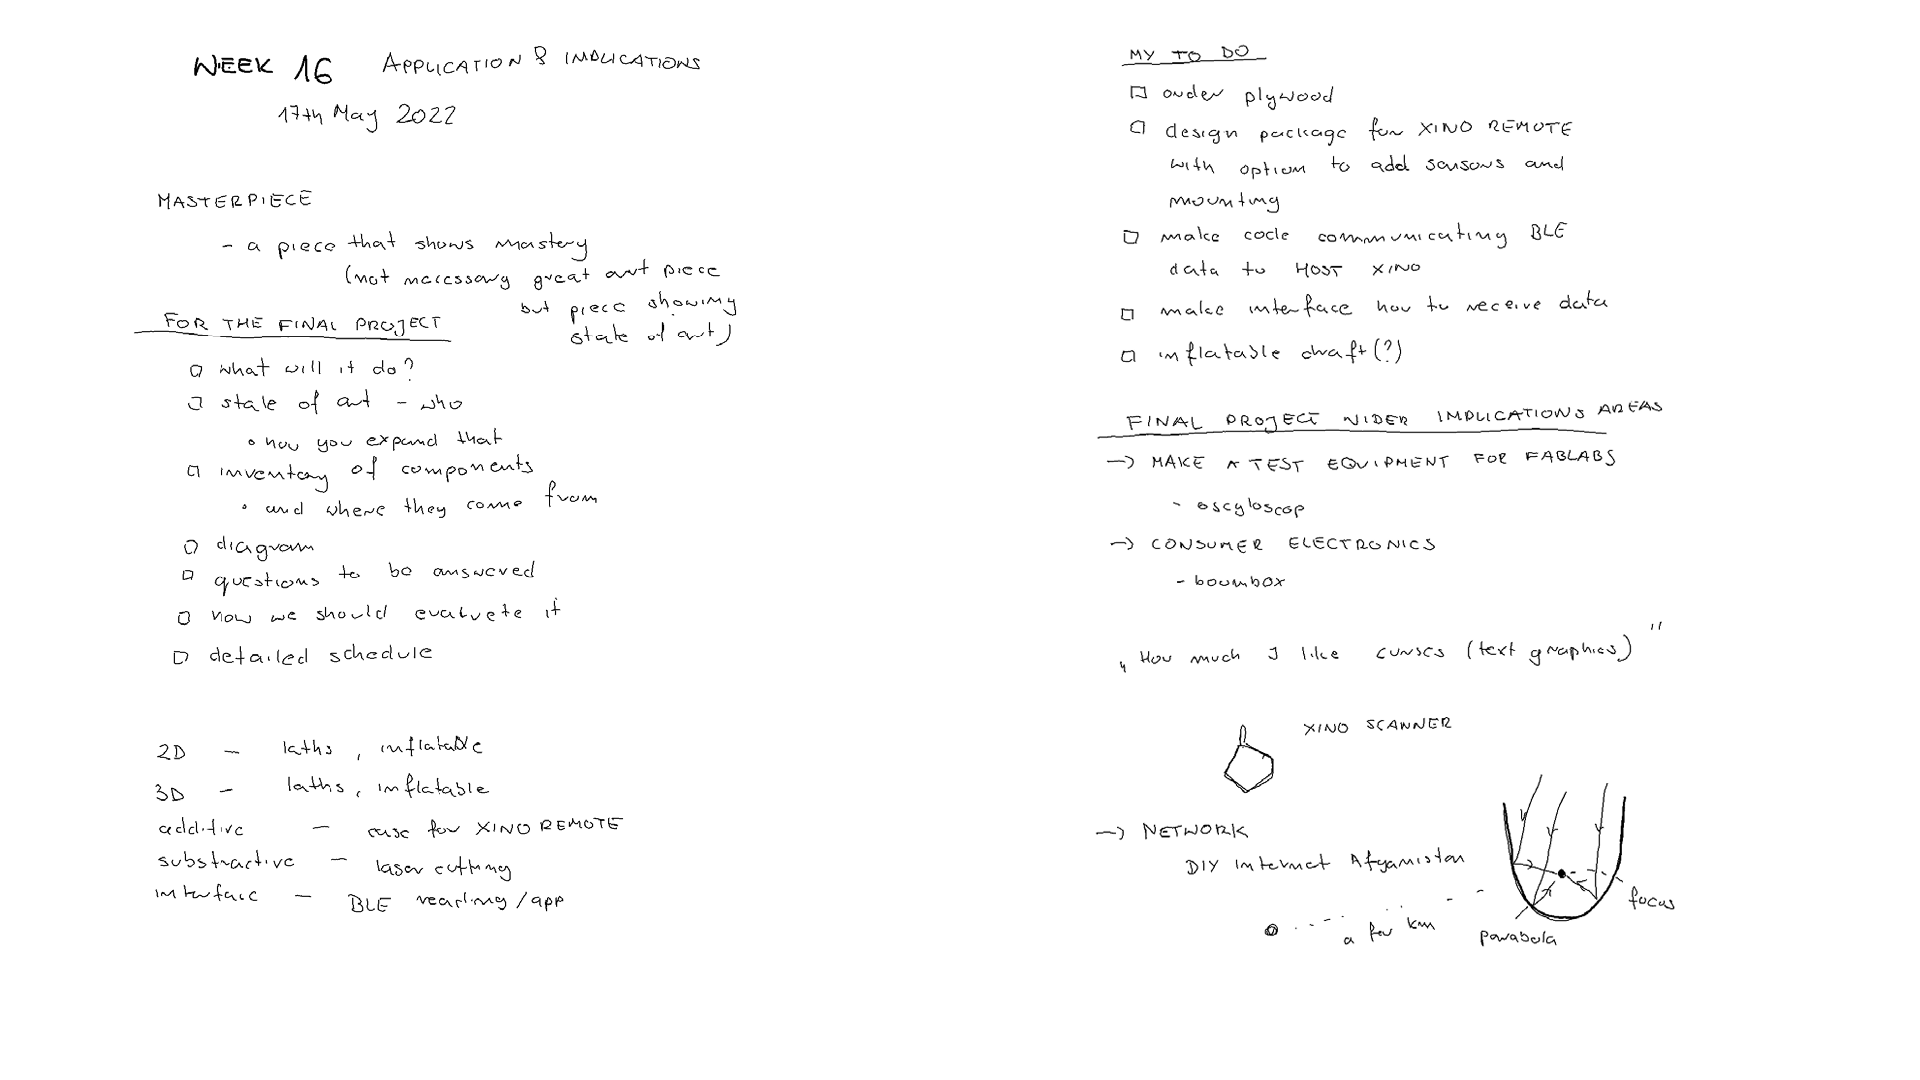 WEEK 16 APPLICATION & IMPLICATIONS
17th May 2022
MASTERPIECE
- a piece that shows mastery
(not necessary great art piece
but piece showing
state of art)
FOR THE FINAL PROJECT
□ what will it do?
□ state of art - who
• how you expand that
□ inventory of components
• and where they come from
□ diagram
□ questions to be answered
□ how we should evaluate it
□ detailed schedule
2D - laths, inflatable
3D - laths, inflatable
additive - case for XINO REMOTE
substractive - laser cutting
interface - BLE reading/app
MY TO DO
□ order plywood
□ design package for XINO REMOTE
with option to add sensors and
mounting
□ make code communicating BLE
data to HOST XINO
□ make interface how to receive data
□ inflatable draft(?)
FINAL PROJECT WIDER IMPLICATIONS AREAS
→ MAKE A TEST EQUIPMENT FOR FABLABS
- oscyloscop
→ CONSUMER ELECTRONICS
- boombox
„How much I like curses (text graphics)"
XINO SCANNER
→ NETWORK
DIY Internet Afganistan
focus
a few km
parabola